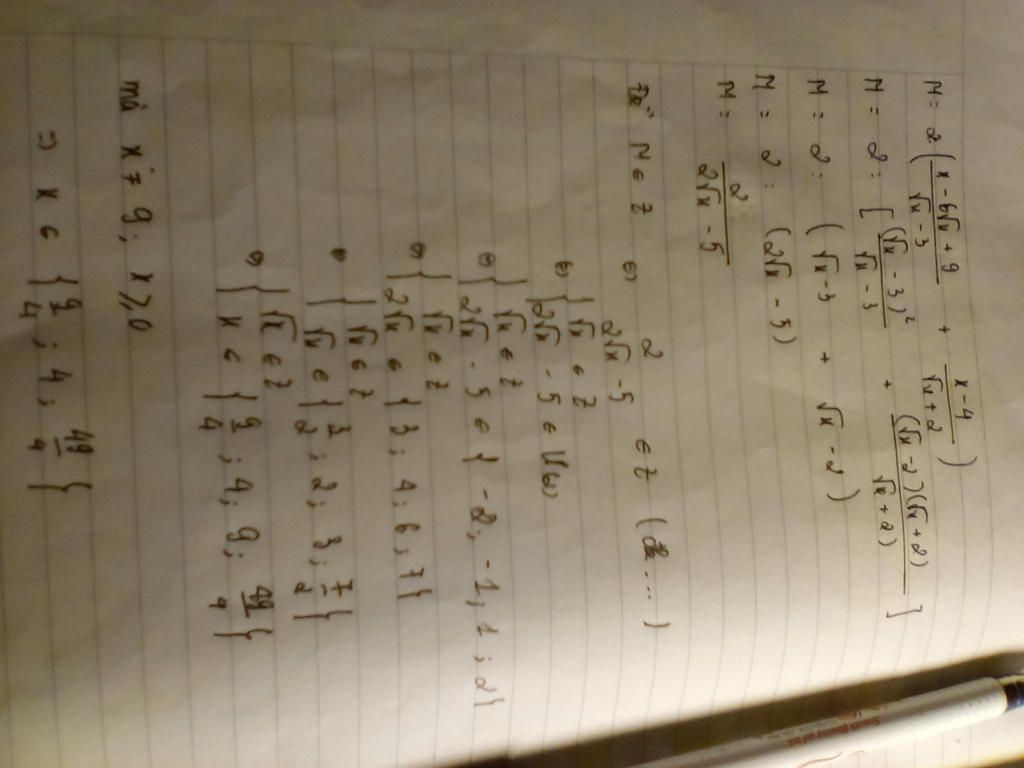 M = 2 ( x - 6√x + 9 / √x - 3 + x - 4 / √x + 2 )
M = 2 : [ (√x - 3)² / √x - 3 + (√x - 2)(√x + 2) / √x + 2) ]
M = 2 : ( √x - 3 + √x - 2 )
M = 2 : (2√x - 5)
M = 2 / 2√x - 5
M ∈ Z ⇔ 2 / 2√x - 5 ∈ Z ( ... )
⇔ { √x ∈ Z
2√x - 5 ∈ Ư(2)
⇔ { √x ∈ Z
2√x - 5 ∈ { -2; -1; 1; 2 }
⇔ { √x ∈ Z
2√x ∈ { 3; 4; 6; 7 }
⇔ { √x ∈ Z
√x ∈ { 3/2; 2; 3; 7/2 }
⇔ { √x ∈ Z
x ∈ { 9/4; 4; 9; 49/4 }
mà x ≠ 9; x ⩾ 0
⇒ x ∈ { 9/4; 4; 49/4 }